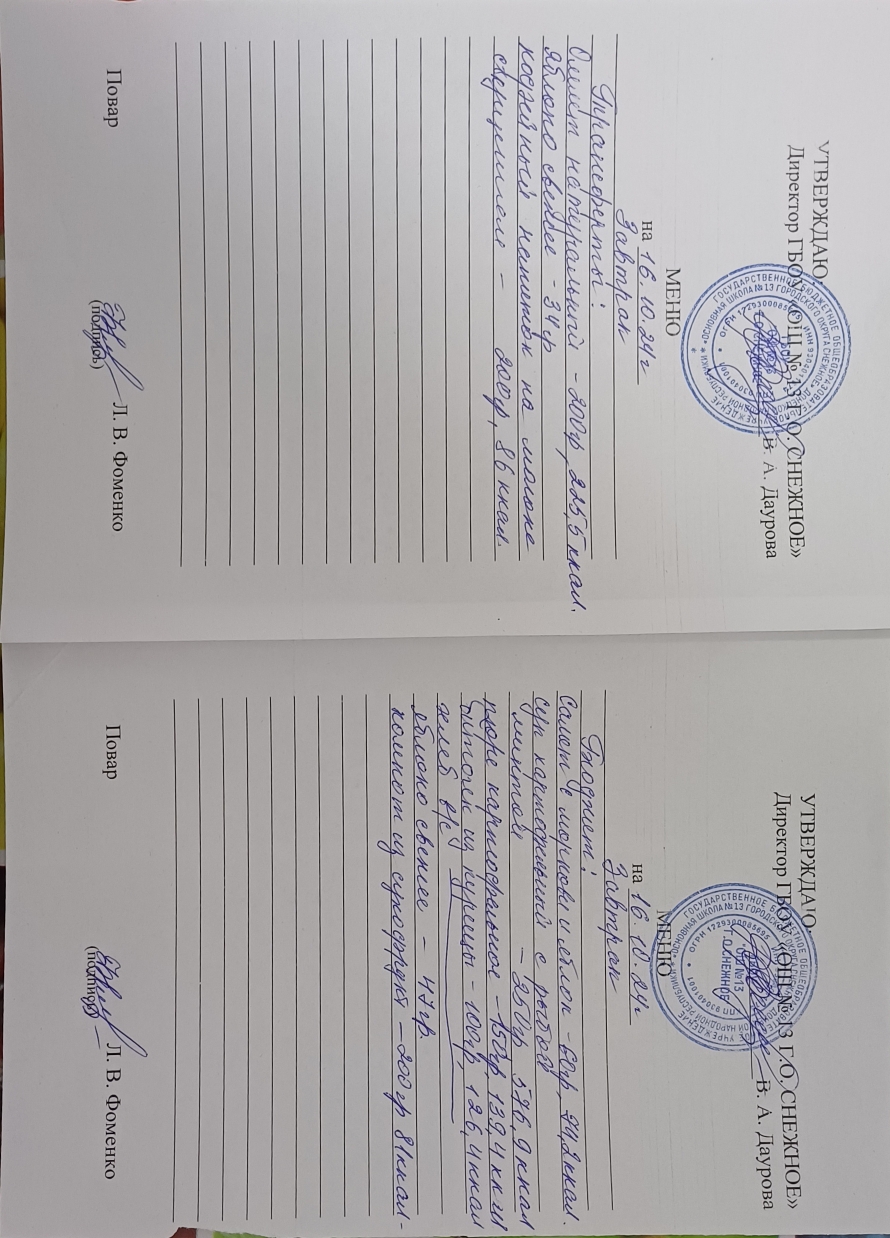 УТВЕРЖДАЮ
Директор ГБОУ «ОШ № 13 Г.О. СНЕЖНОЕ»
В. А. Даурова
МЕНЮ
на 16.10.24г
Завтрак
Трансферты:
Омлет натуральный - 200гр, 225,5 ккал.
Яблоко свежее - 34гр
кофейный напиток на молоке
сгущенном - 200гр, 86 ккал.
Повар
Л. В. Фоменко
(подпись)
УТВЕРЖДАЮ
Директор ГБОУ «ОШ № 13 Г.О. СНЕЖНОЕ»
В. А. Даурова
МЕНЮ
на 16.10.24г
Завтрак
Бюджет:
Салат с моркови и яблок - 60гр, 24,2 ккал.
суп картофельный с рыбой
минтай - 250гр 576,9 ккал
пюре картофельное - 150гр 139,4 ккал
биточек из курицы - 100гр, 126,4 ккал
хлеб в/с
яблоко свежее - 47гр.
компот из сухофрукт - 200гр 81 ккал-
Повар
Л. В. Фоменко
(подпись)